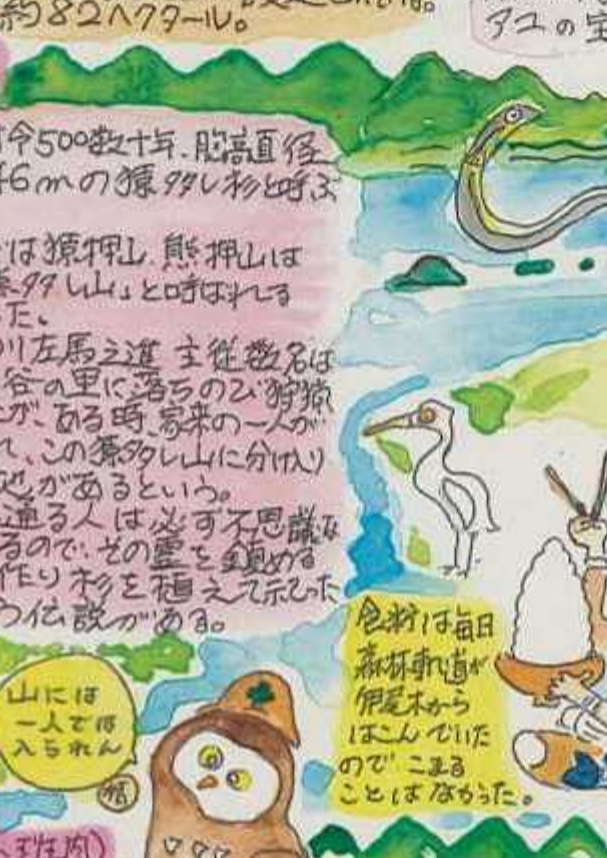 約82ヘクタール。
アユの宝
令500数十年、胸高直径
46mの猿タタレ杉と呼ぶ
は猿押山、熊押山は
タタレ山」と呼ばれてる
った。
川左馬之進 主従数名は
谷の里に落ちのび狩猟
が、ある時家来の一人が
て、この猿タタレ山に分け入り
があるという。
通る人は必ず不思議な
るので、その霊を鎮める
作り杉を植えて示った
う伝説がある。
食料は毎日
森林軌道が
伊尾木から
はこんでいた
ので こまる
ことは なかった。
山には
一人では
入られん